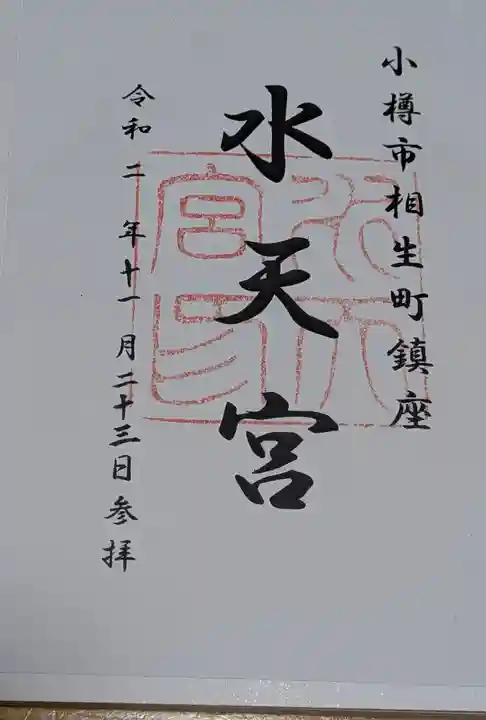 小樽市相生町鎮座
水天宮
令和二年十一月二十三日参拝
水天宮印